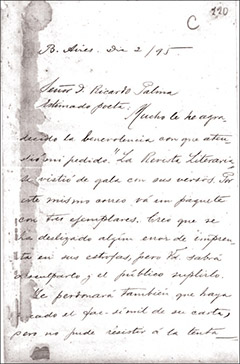 C 220
B. Aires. Dic 2/95
Señor D. Ricardo Palma
Estimado poeta:
Mucho le he agra-
decido la benevolencia con que aten-
dió mi pedido. "La Revista Literaria"
se vistió de gala con sus versos. Por
este mismo correo vá un paquete
con tres ejemplares. Creo que se
ha deslizado algún error de impren-
ta en sus estrofas, pero Ud. sabrá
disculparlo y el público suplirlo.
Me perdonará también que haya
sacado el fac-simil de su carta,
pero no pude resistir á la tenta-